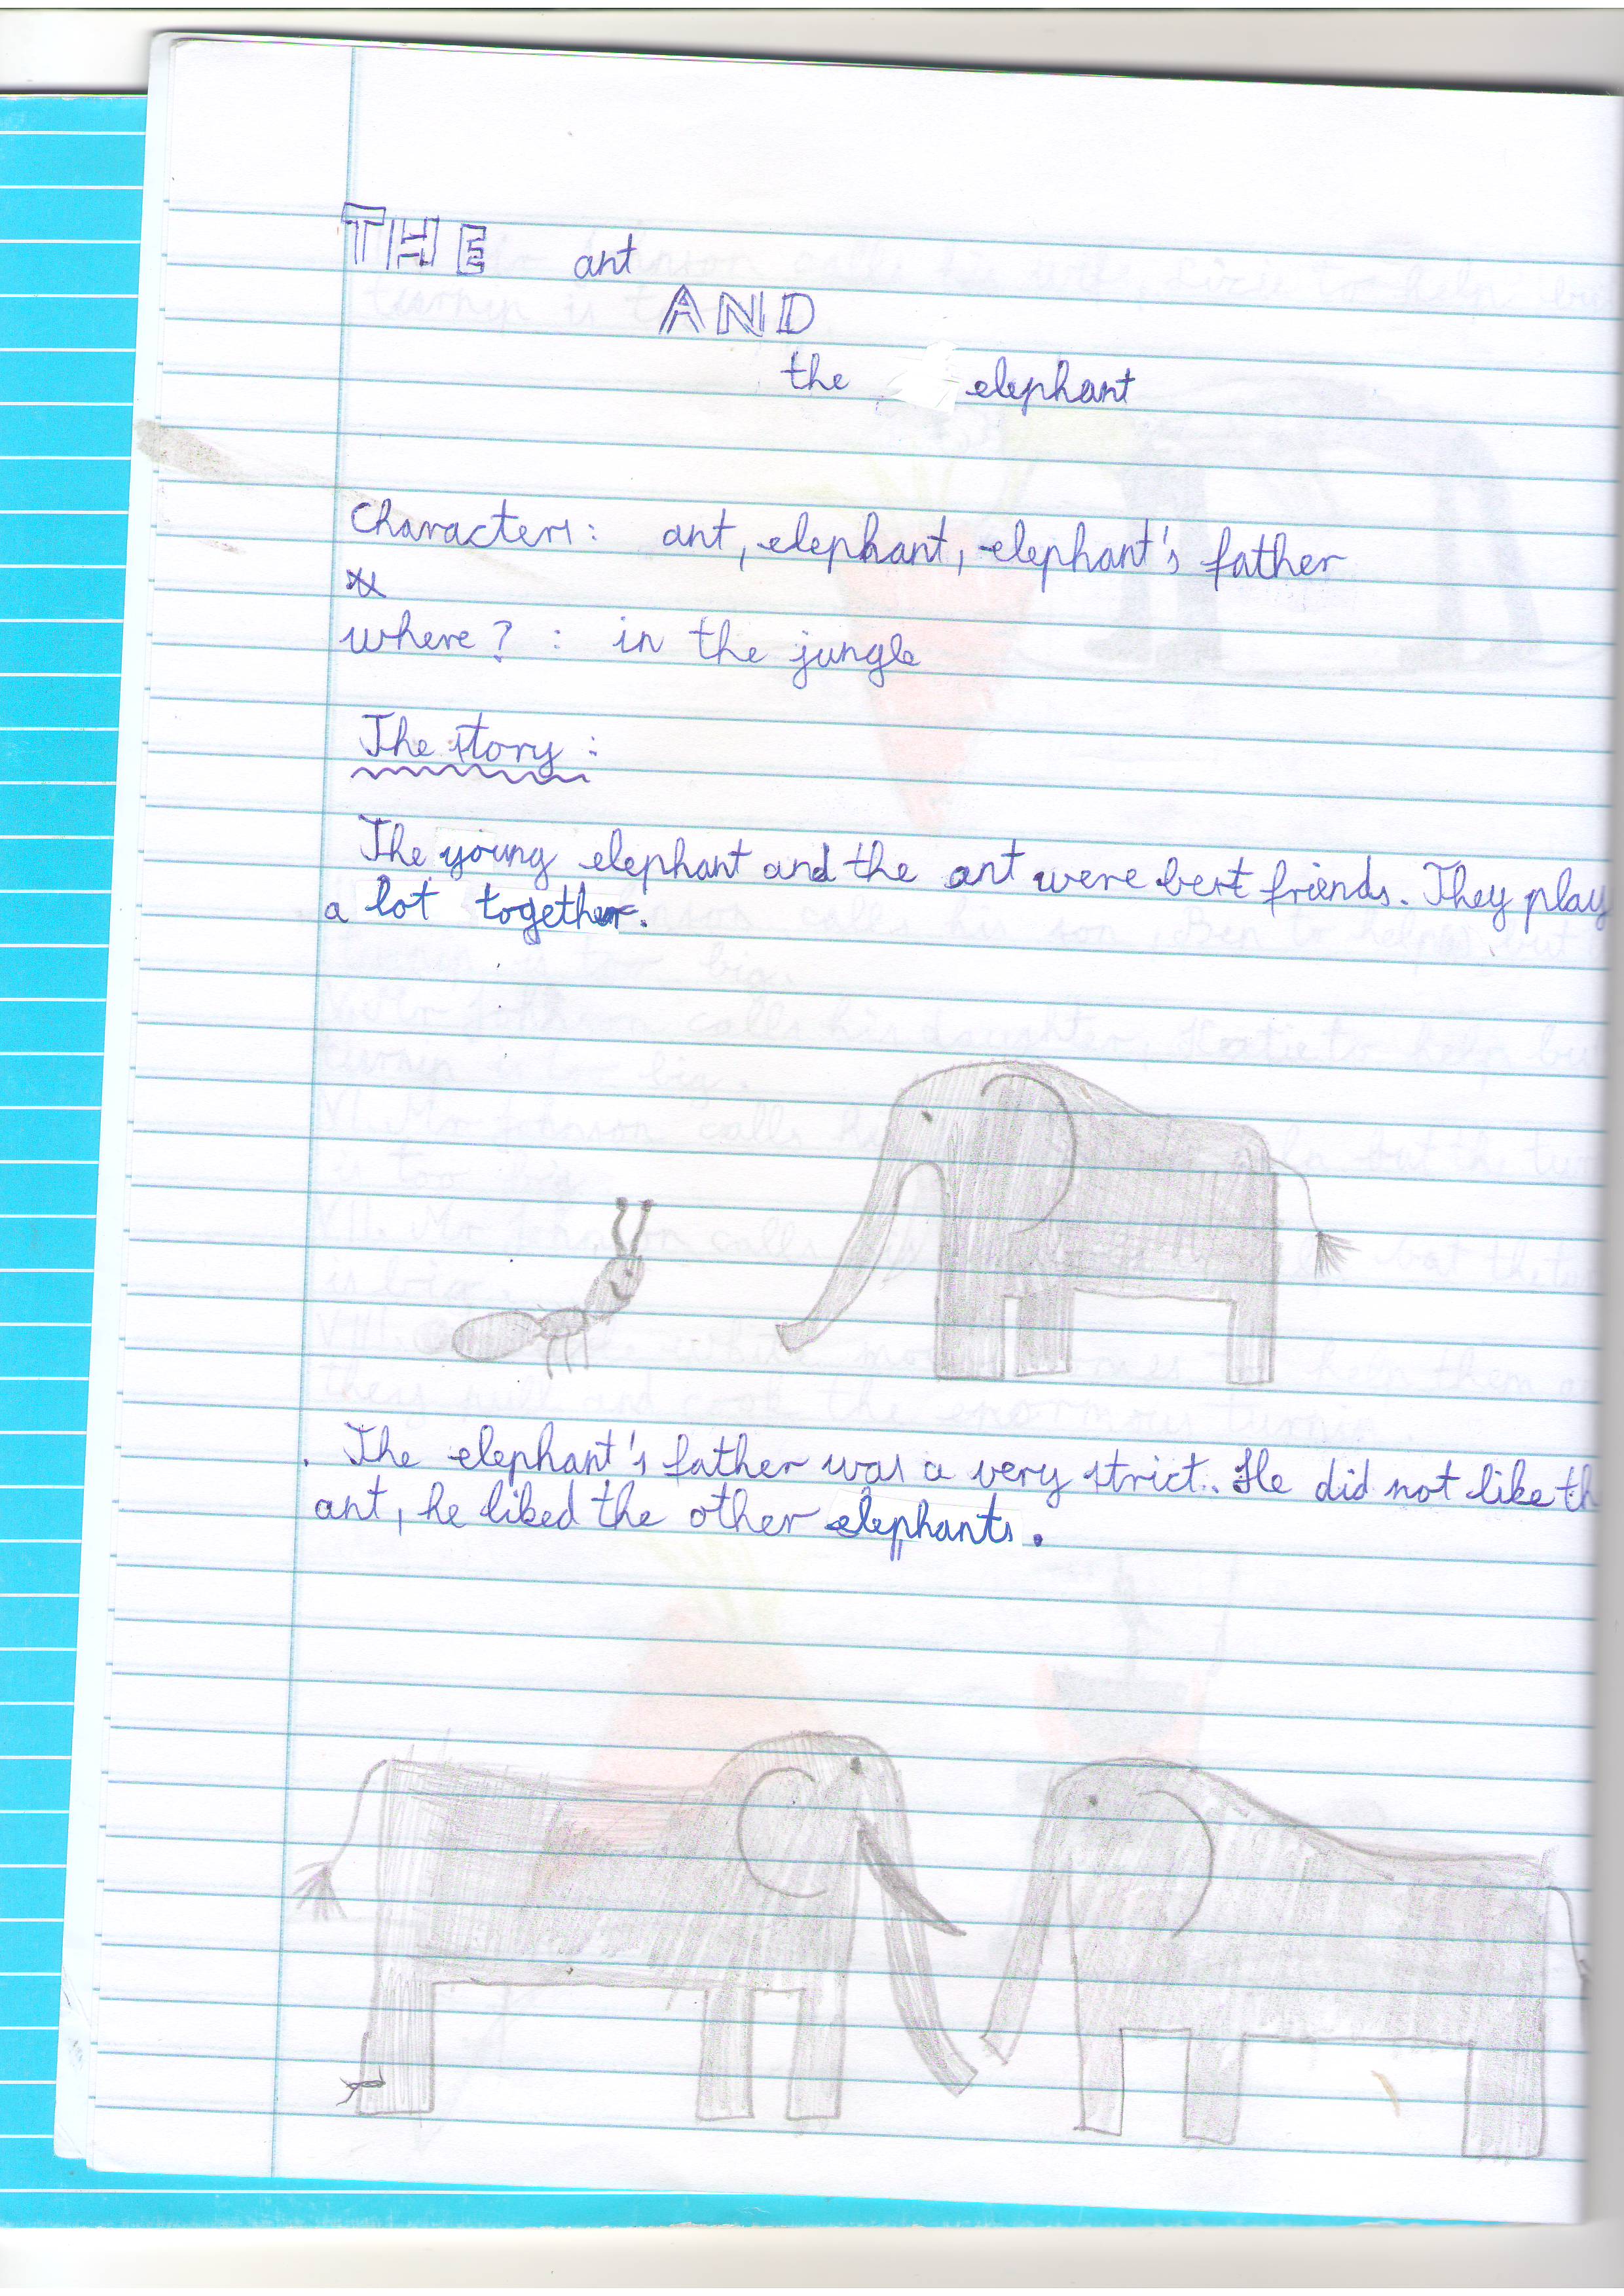 THE ant
AND
the elephant
Characters: ant, elephant, elephant's father
where? : in the jungle
The story:
The young elephant and the ant were best friends. They play
a lot together.
. The elephant's father was a very strict.. He did not like th
ant, he liked the other elephants.